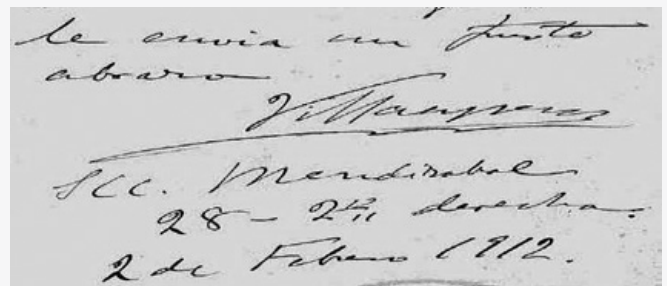 le envia un fuerte
abrazo
Villaespesa
S/C. Mendizabal
28 - 2º derecha.
2 de Febrero 1912.